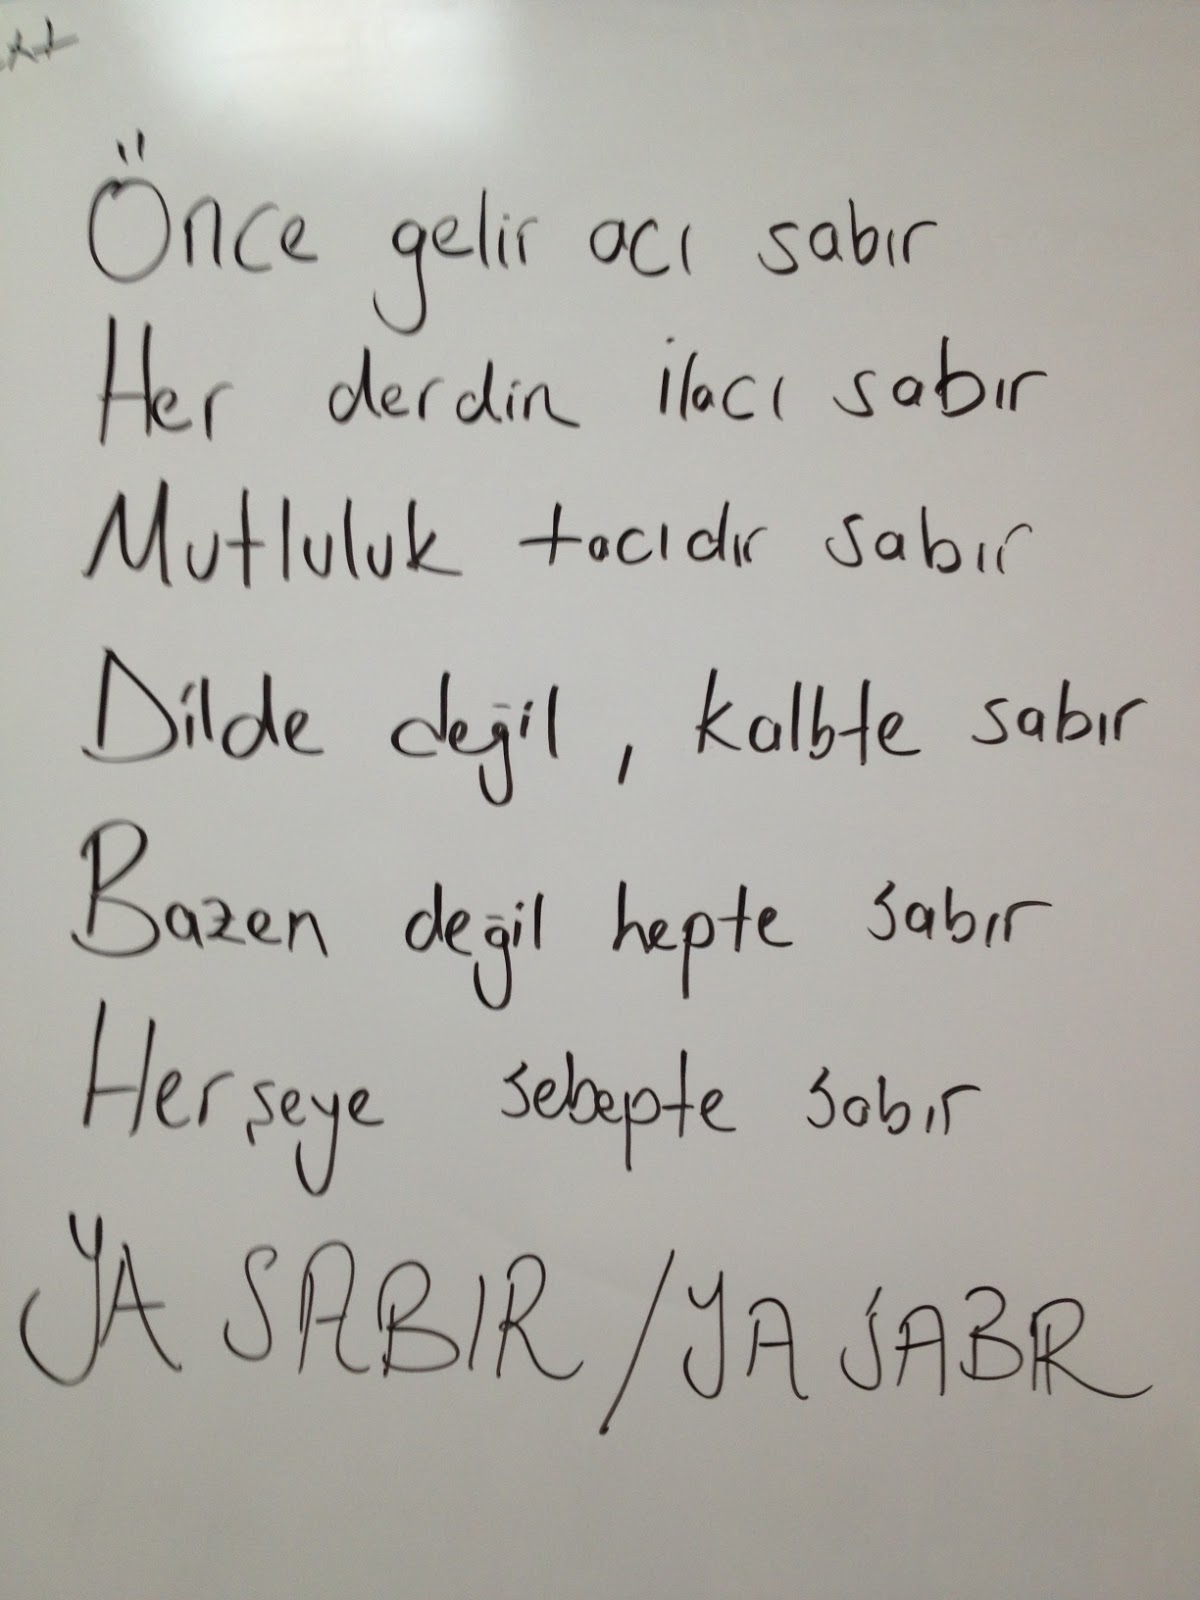 Önce gelir acı sabır
Her derdin ilacı sabır
Mutluluk tacıdır sabır
Dilde değil, kalbte sabır
Bazen değil hepte sabır
Herşeye sebepte sabır
YA SABIR / YA SABR